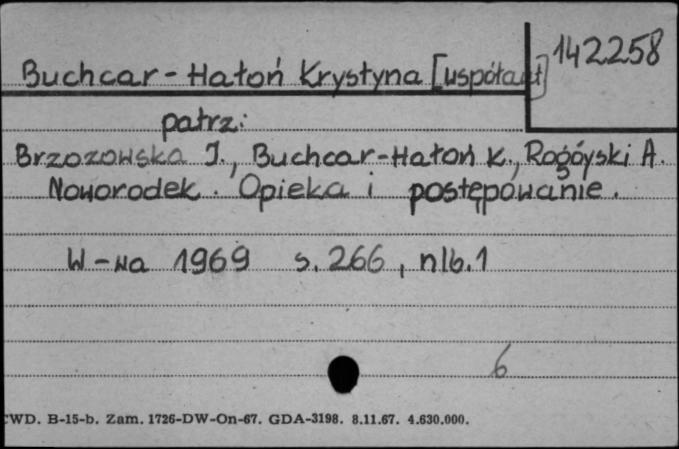 Buchcar-Hatoń Krystyna [współaut]
142258
patrz:
Brzozowska J., Buchcar-Hatoń K., Rogóyski A.
Noworodek. Opieka i postępowanie.
W-wa 1969 s. 266, nlb.1
6
CWD. B-15-b. Zam. 1726-DW-On-67. GDA-3198. 8.11.67. 4.630.000.